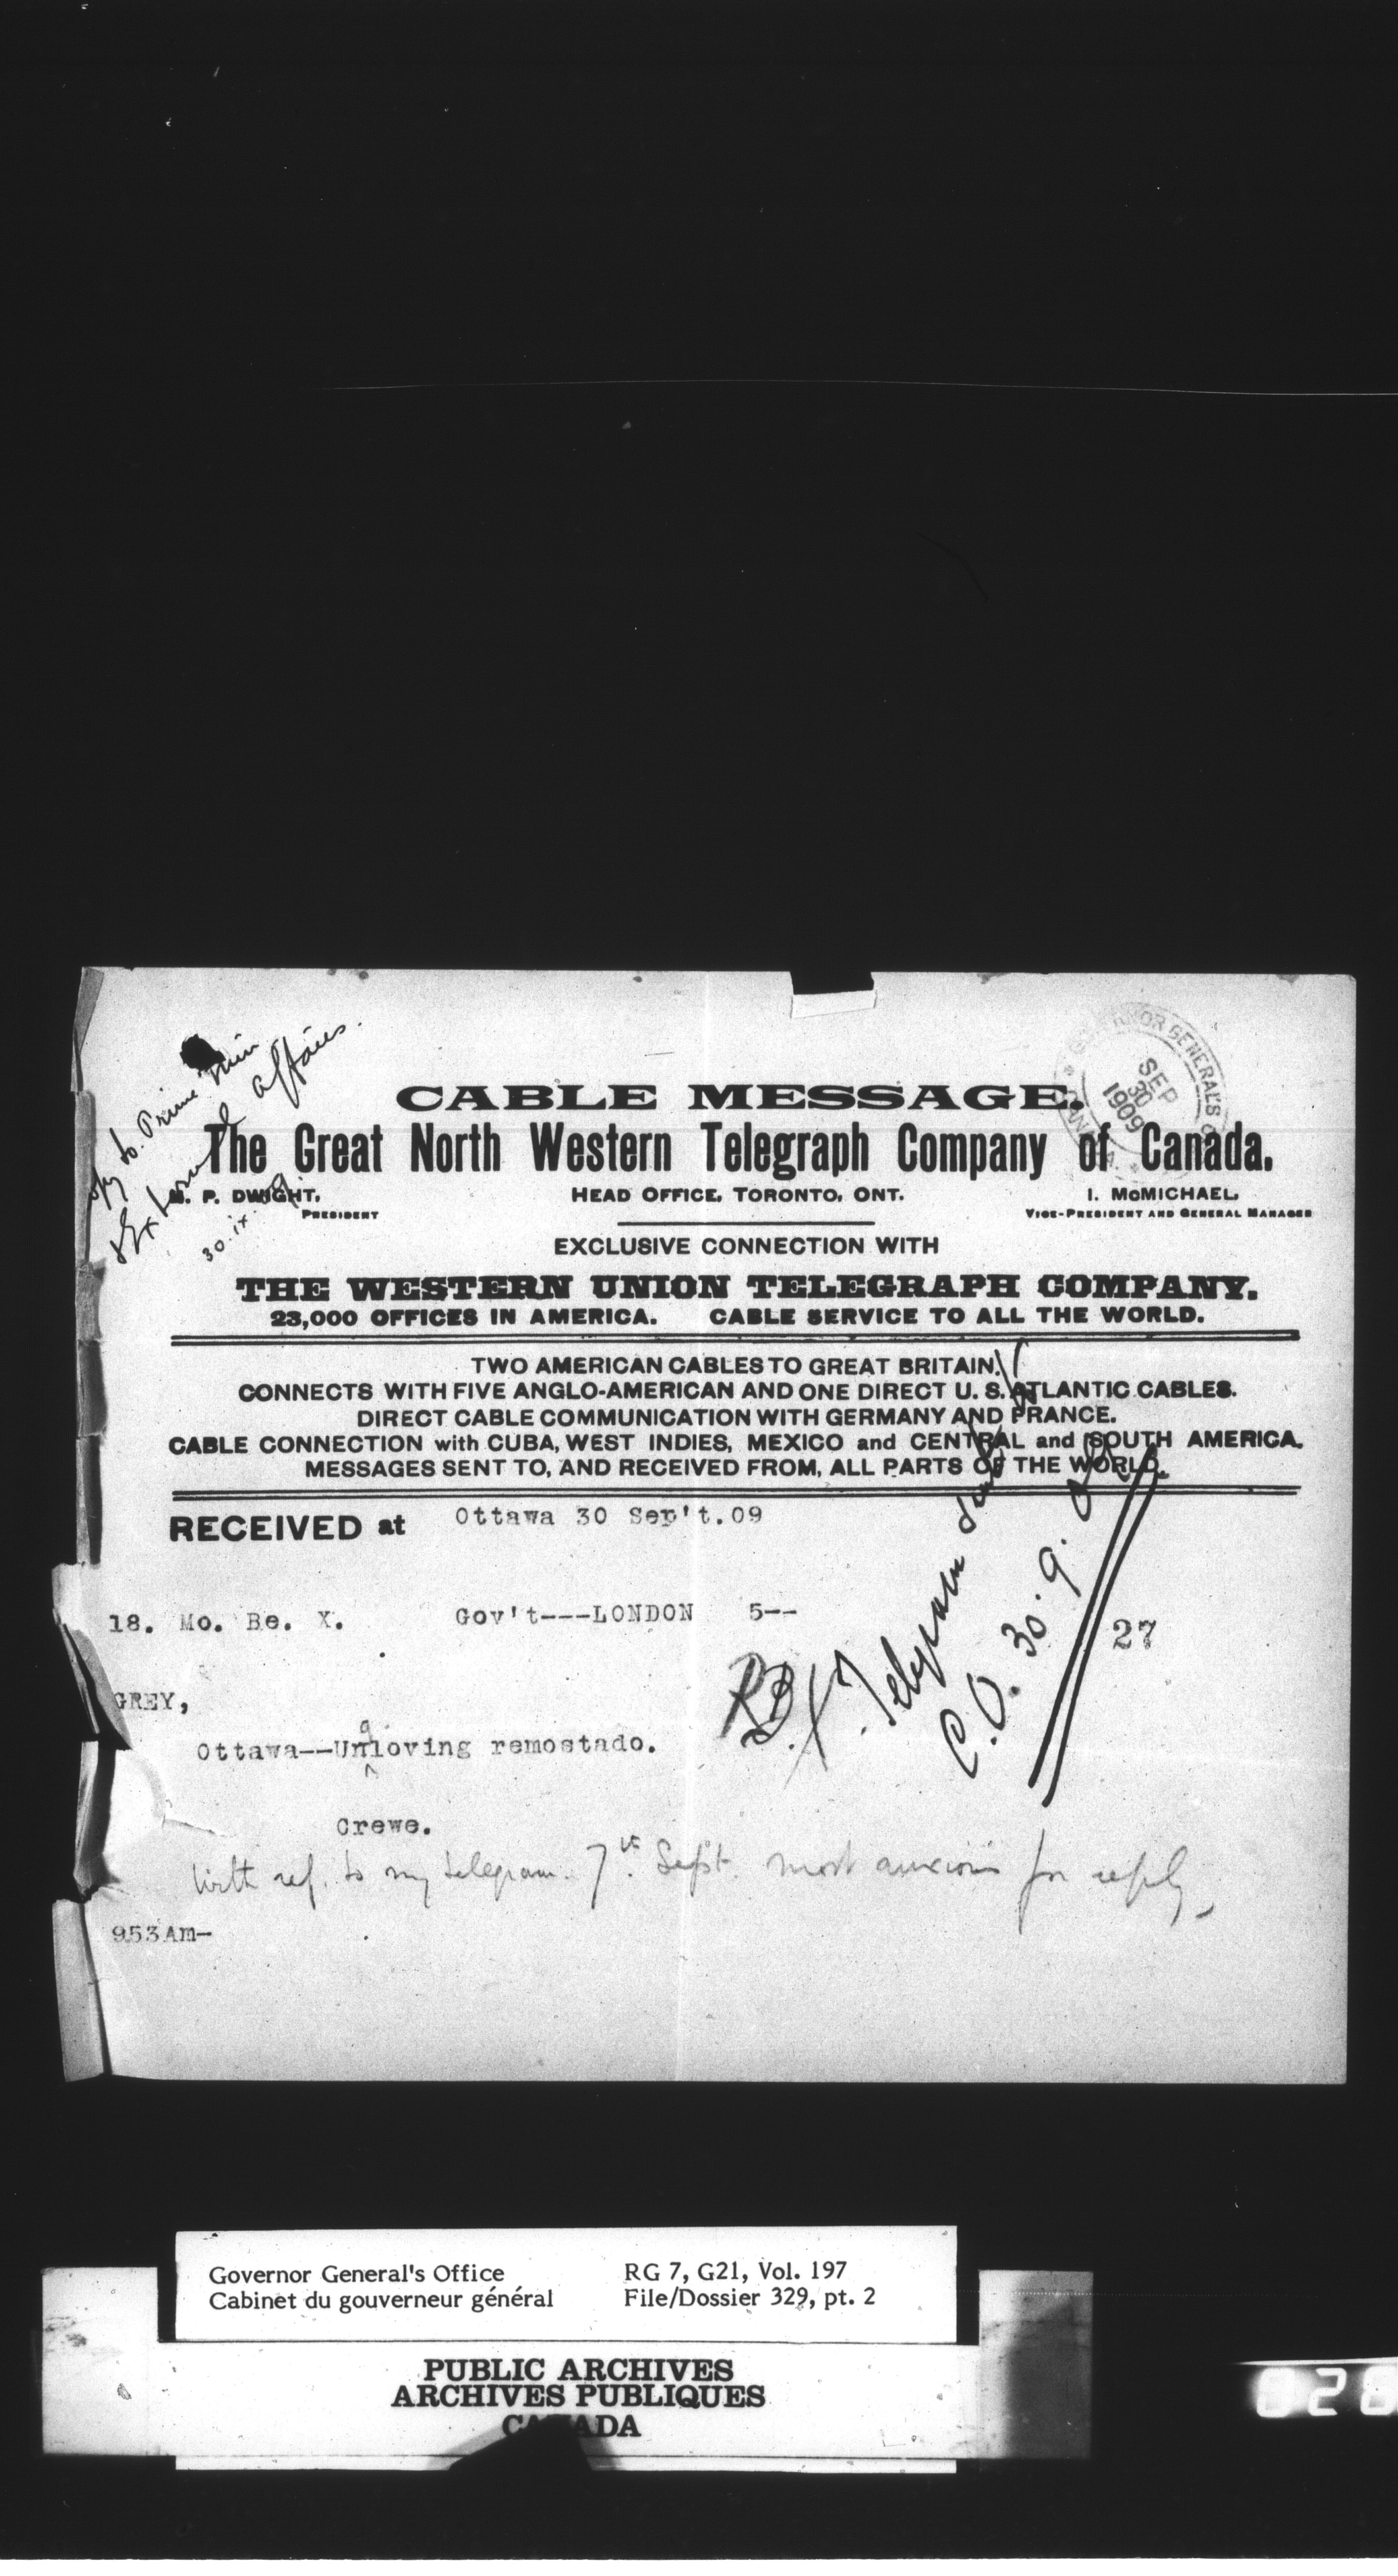 to Prime Min
& External Affairs.
30.ix.09
GOVERNOR GENERAL'S
SEP
30
1909
CABLE MESSAGE.
The Great North Western Telegraph Company of Canada.
P. DWIGHT,
PRESIDENT
HEAD OFFICE, TORONTO, ONT.
I. McMICHAEL,
VICE-PRESIDENT AND GENERAL MANAGER
EXCLUSIVE CONNECTION WITH
THE WESTERN UNION TELEGRAPH COMPANY.
23,000 OFFICES IN AMERICA. CABLE SERVICE TO ALL THE WORLD.
TWO AMERICAN CABLES TO GREAT BRITAIN.
CONNECTS WITH FIVE ANGLO-AMERICAN AND ONE DIRECT U. S. ATLANTIC CABLES.
DIRECT CABLE COMMUNICATION WITH GERMANY AND FRANCE.
CABLE CONNECTION with CUBA, WEST INDIES, MEXICO and CENTRAL and SOUTH AMERICA.
MESSAGES SENT TO, AND RECEIVED FROM, ALL PARTS OF THE WORLD.
RECEIVED at Ottawa 30 Sep't.09
18. Mo. Be. X. Gov't---LONDON 5--
27
Telegram
C.O. 30.9.
GREY,
Ottawa--Unloving remostado.
a
Crewe.
With ref. to my telegram 7th Sept. most anxious for reply
953Am-
Governor General's Office
Cabinet du gouverneur général
RG 7, G21, Vol. 197
File/Dossier 329, pt. 2
PUBLIC ARCHIVES
ARCHIVES PUBLIQUES
CANADA